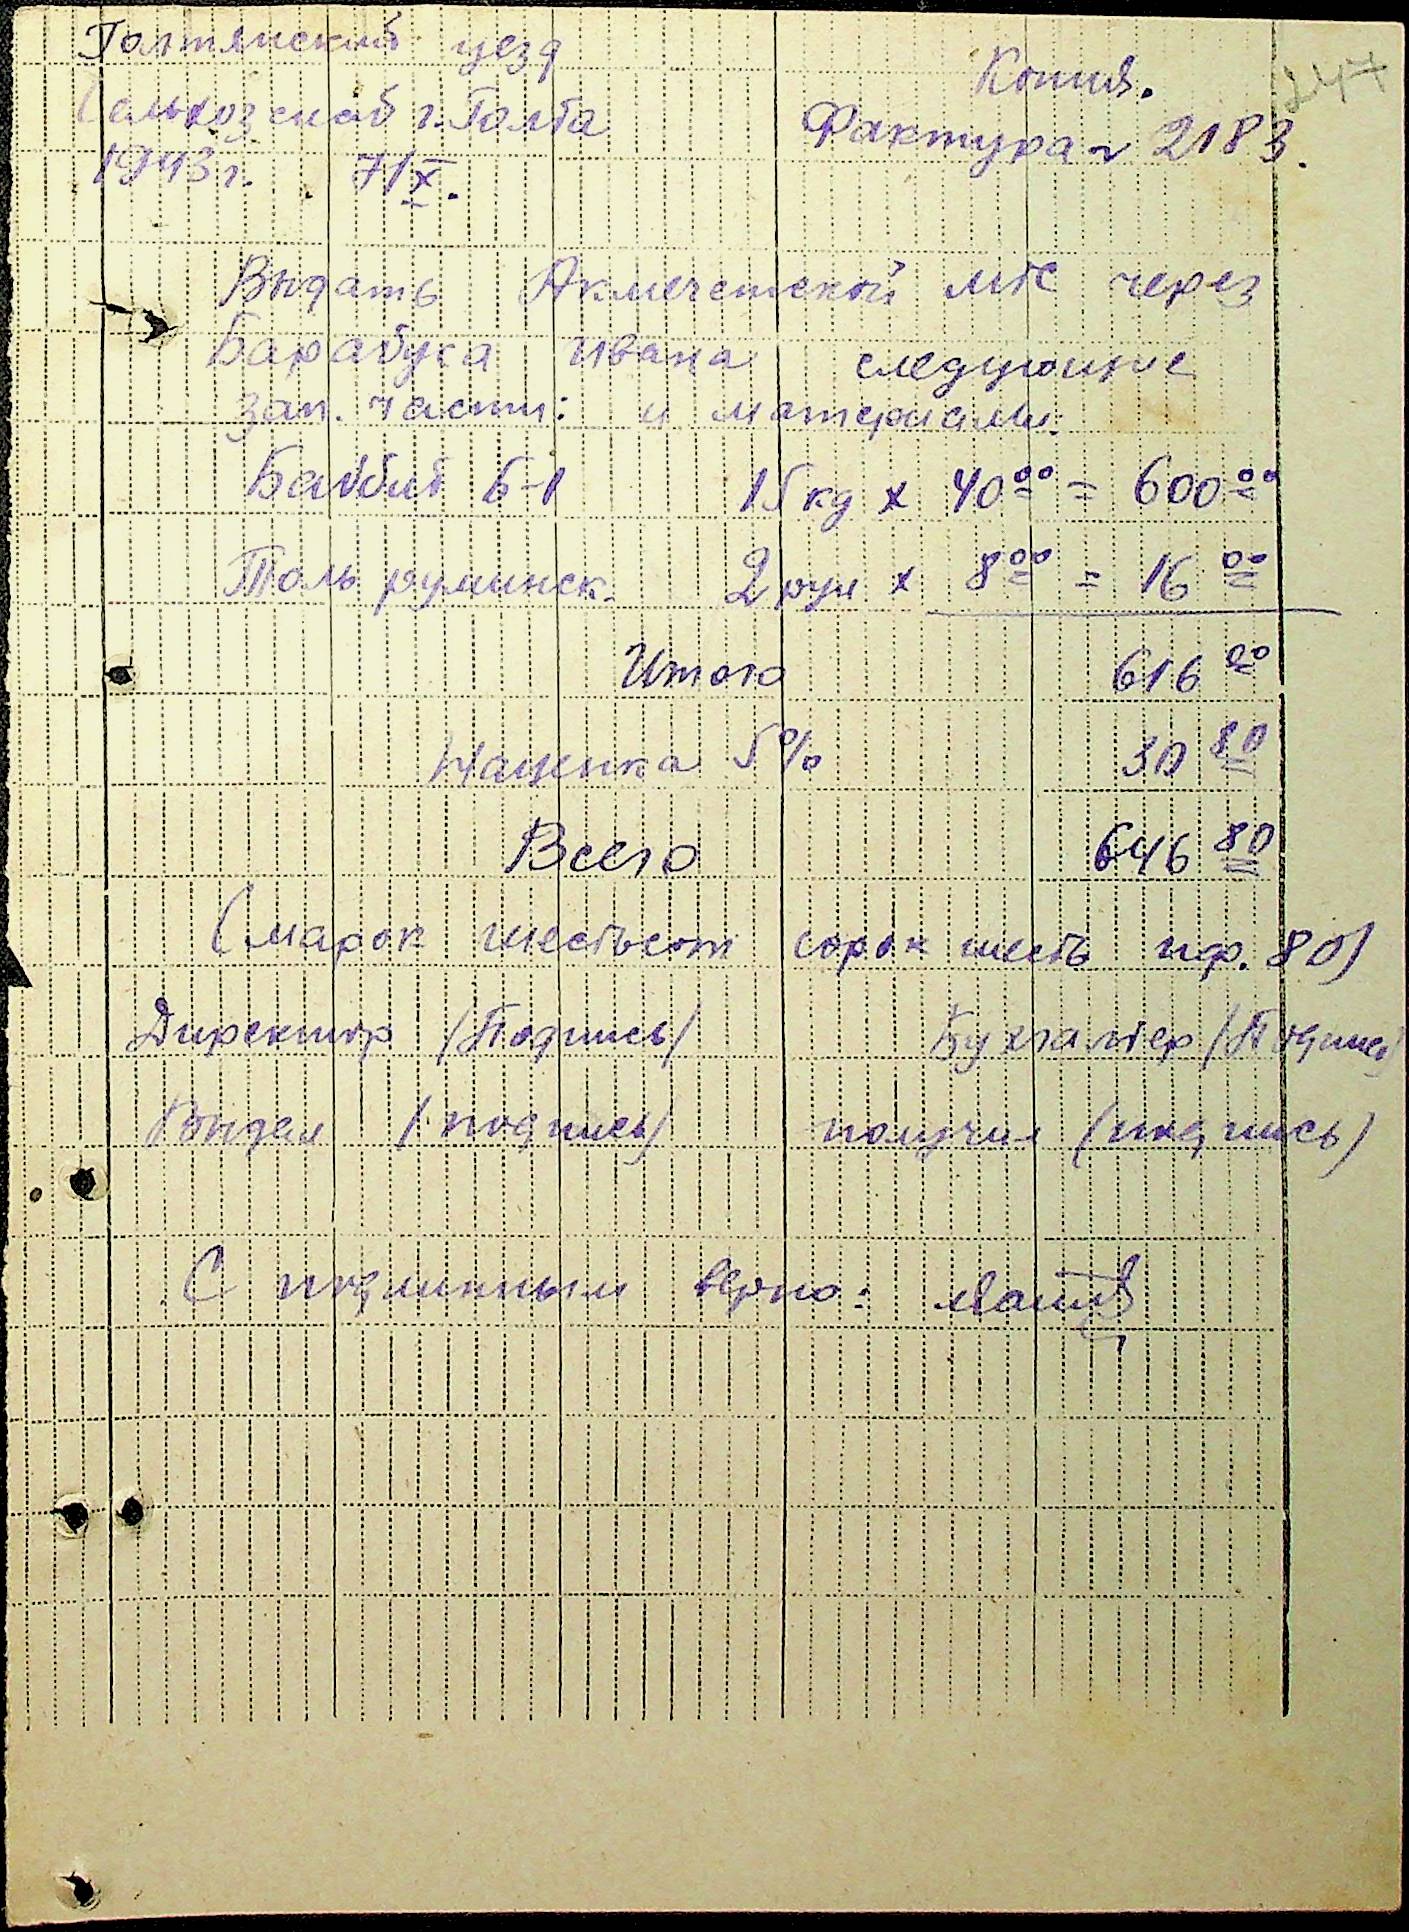 247
Голтянский уезд
Копия.
Сельхозснаб г. Голта
Фактура № 2183.
1943 г. 7/X.
Выдать Акмечетской мтс через
Барабука Ивана следующие
зап. части: и материалы:
Баббит Б-1 15 кг х 40 00 = 600 00
Толь румынск. 2 рул х 8 00 = 16 00
Итого 616 00
Наценка 5% 30 80
Всего 646 80
(марок шестьсот сорок шесть пф. 80)
Директор /Подпись/ Бухгалтер /Подпись/
Выдал /подпись/ получил (подпись)
С подлинным верно: